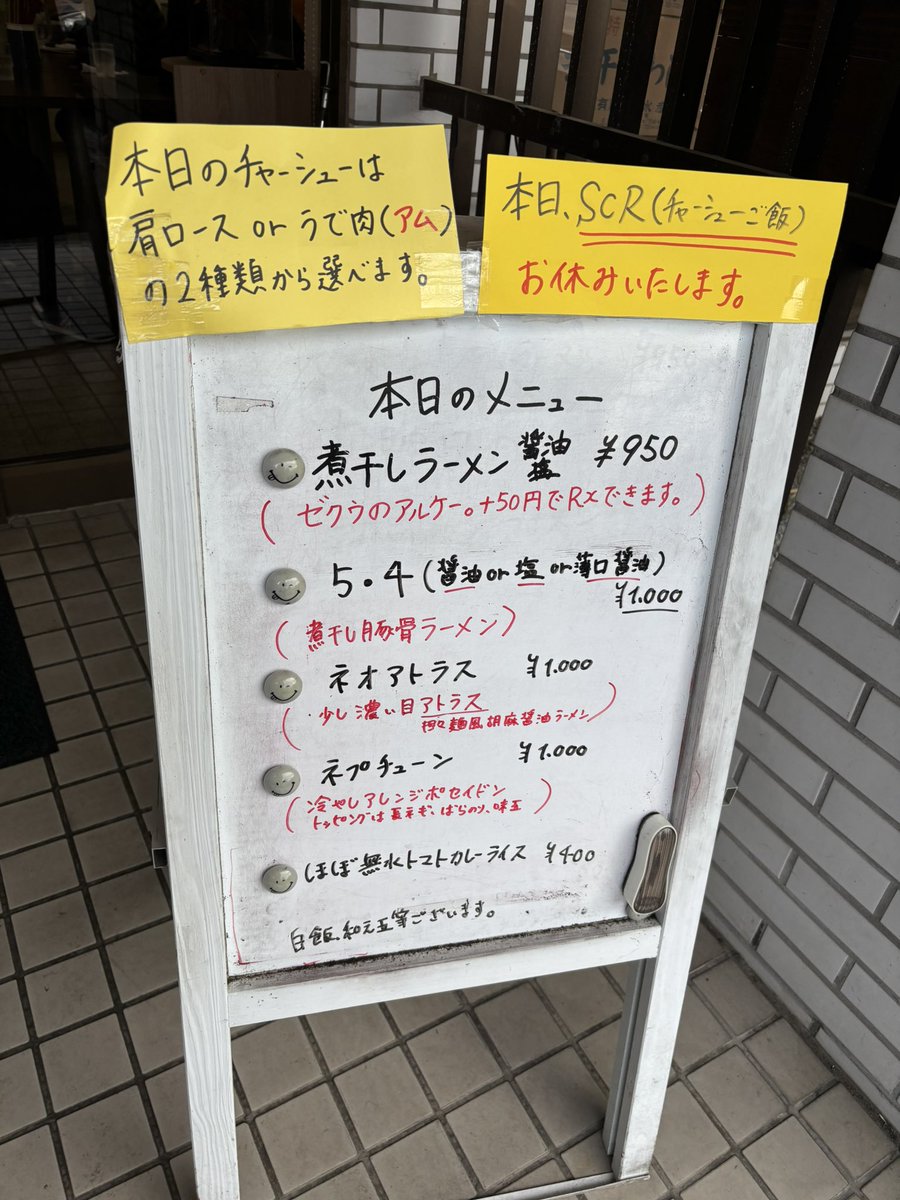 本日のチャーシューは
肩ロース or うで肉(アム)
の2種類から選べます。
本日、SCR(チャーシューご飯)
お休みいたします。
本日のメニュー
煮干しラーメン 醤油 塩 ¥950
(ゼクウのアルケー。+50円でRXできます。)
5・4(醤油or塩or薄口醤油)
¥1.000
(煮干し豚骨ラーメン)
ネオアトラス ¥1.000
(少し濃い目アトラス
担々麺風胡麻醤油ラーメン)
ネプチューン ¥1.000
(冷やしアレンジポセイドン
トッピングは玉ネギ、ばらのり、味玉)
ほぼ無水トマトカレーライス ¥400
白飯、和え玉等ございます。